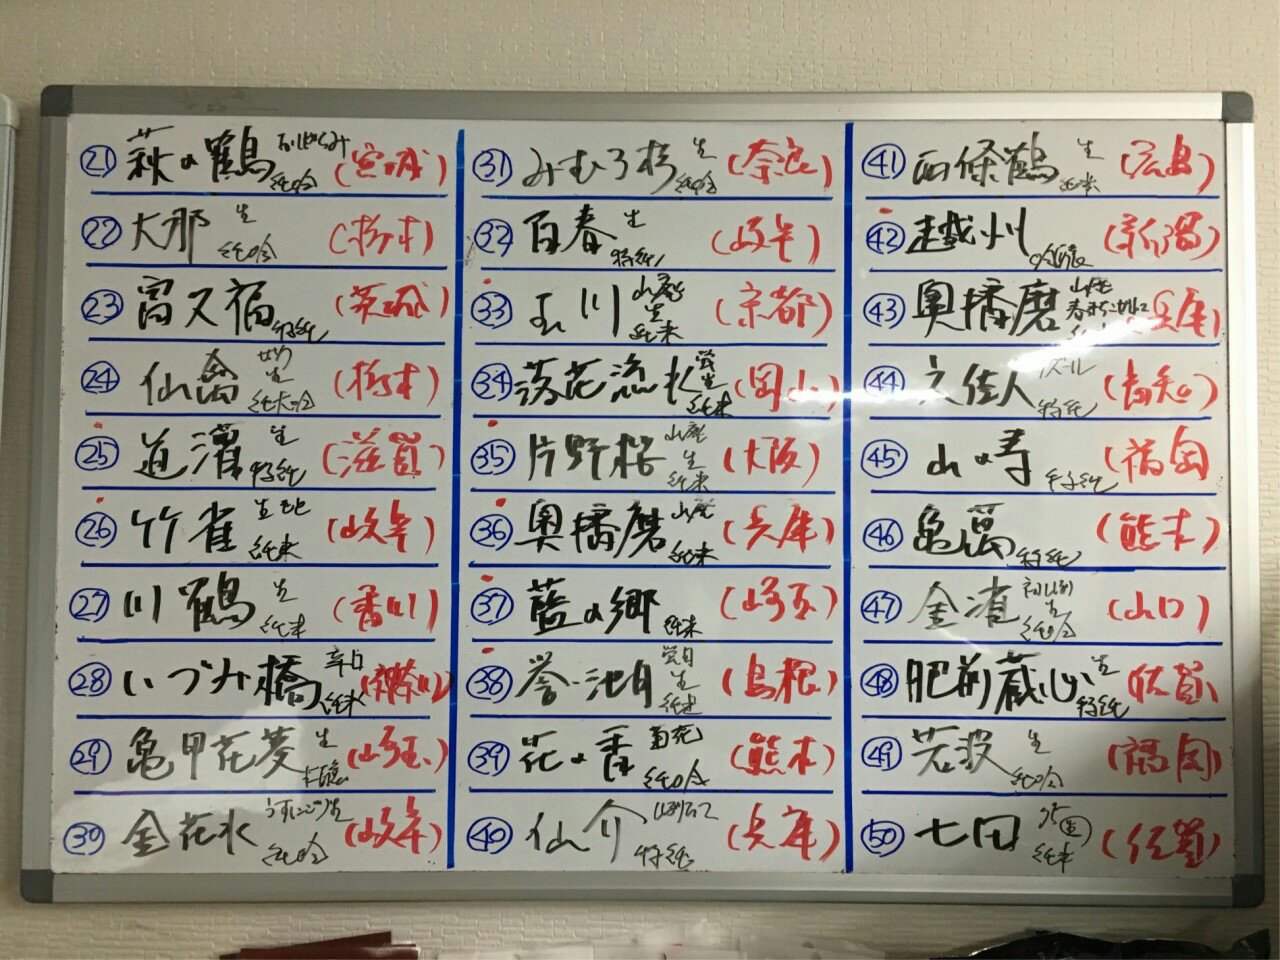 ㉑ 萩の鶴 純吟 (宮城)
㉒ 大那 生 純吟 (栃木)
㉓ 富久福 特純 (茨城)
㉔ 仙禽 生 純大吟 (栃木)
㉕ 道灌 生 特純 (滋賀)
㉖ 竹雀 生 純米 (岐阜)
㉗ 川鶴 生 純米 (香川)
㉘ いづみ橋 辛口 純米 (神奈川)
㉙ 亀甲花菱 生 (埼玉)
㉚ 金花水 うすにごり生 純吟 (岐阜)
㉛ みむろ杉 生 純吟 (奈良)
㉜ 百春 生 特純 (岐阜)
㉝ 玉川 山廃 生 純米 (京都)
㉞ 落花流水 生 純米 (岡山)
㉟ 片野桜 山廃 生 純米 (大阪)
㊱ 奥播磨 山廃 純米 (兵庫)
㊲ 藍の郷 純米 (埼玉)
㊳ 誉池月 生 純米 (島根)
㊴ 花の香 菊花 純吟 (熊本)
㊵ 仙介 特純 (兵庫)
㊶ 西條鶴 生 純米 (広島)
㊷ 越州 吟醸 (新潟)
㊸ 奥播磨 山廃 (兵庫)
㊹ 文佳人 特純 (高知)
㊺ 山の寿 特純 (福岡)
㊻ 亀萬 特純 (熊本)
㊼ 金雀 生 純吟 (山口)
㊽ 肥前蔵心 生 特純 (佐賀)
㊾ 若波 生 純吟 (福岡)
㊿ 七田 純米 (佐賀)